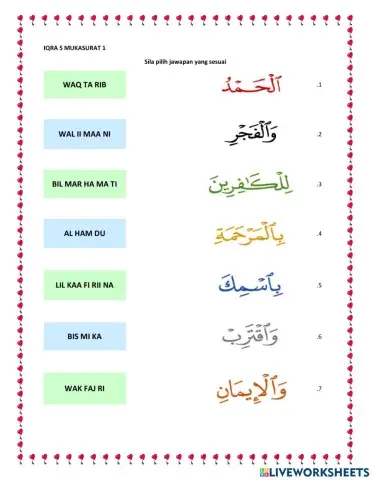 IQRA 5 MUKASURAT 1
Sila pilih jawapan yang sesuai
WAQ TA RIB
ٱلْحَمْدُ
.1
WAL II MAA NI
وَٱلْفَجْرِ
.2
BIL MAR HA MA TI
لِلْكَـٰفِرِينَ
.3
AL HAM DU
بِٱلْمَرْحَمَةِ
.4
LIL KAA FI RII NA
بِٱسْمِكَ
.5
BIS MI KA
وَٱقْتَرِبْ
.6
WAK FAJ RI
وَٱلْإِيمَانِ
.7
LIVEWORKSHEETS